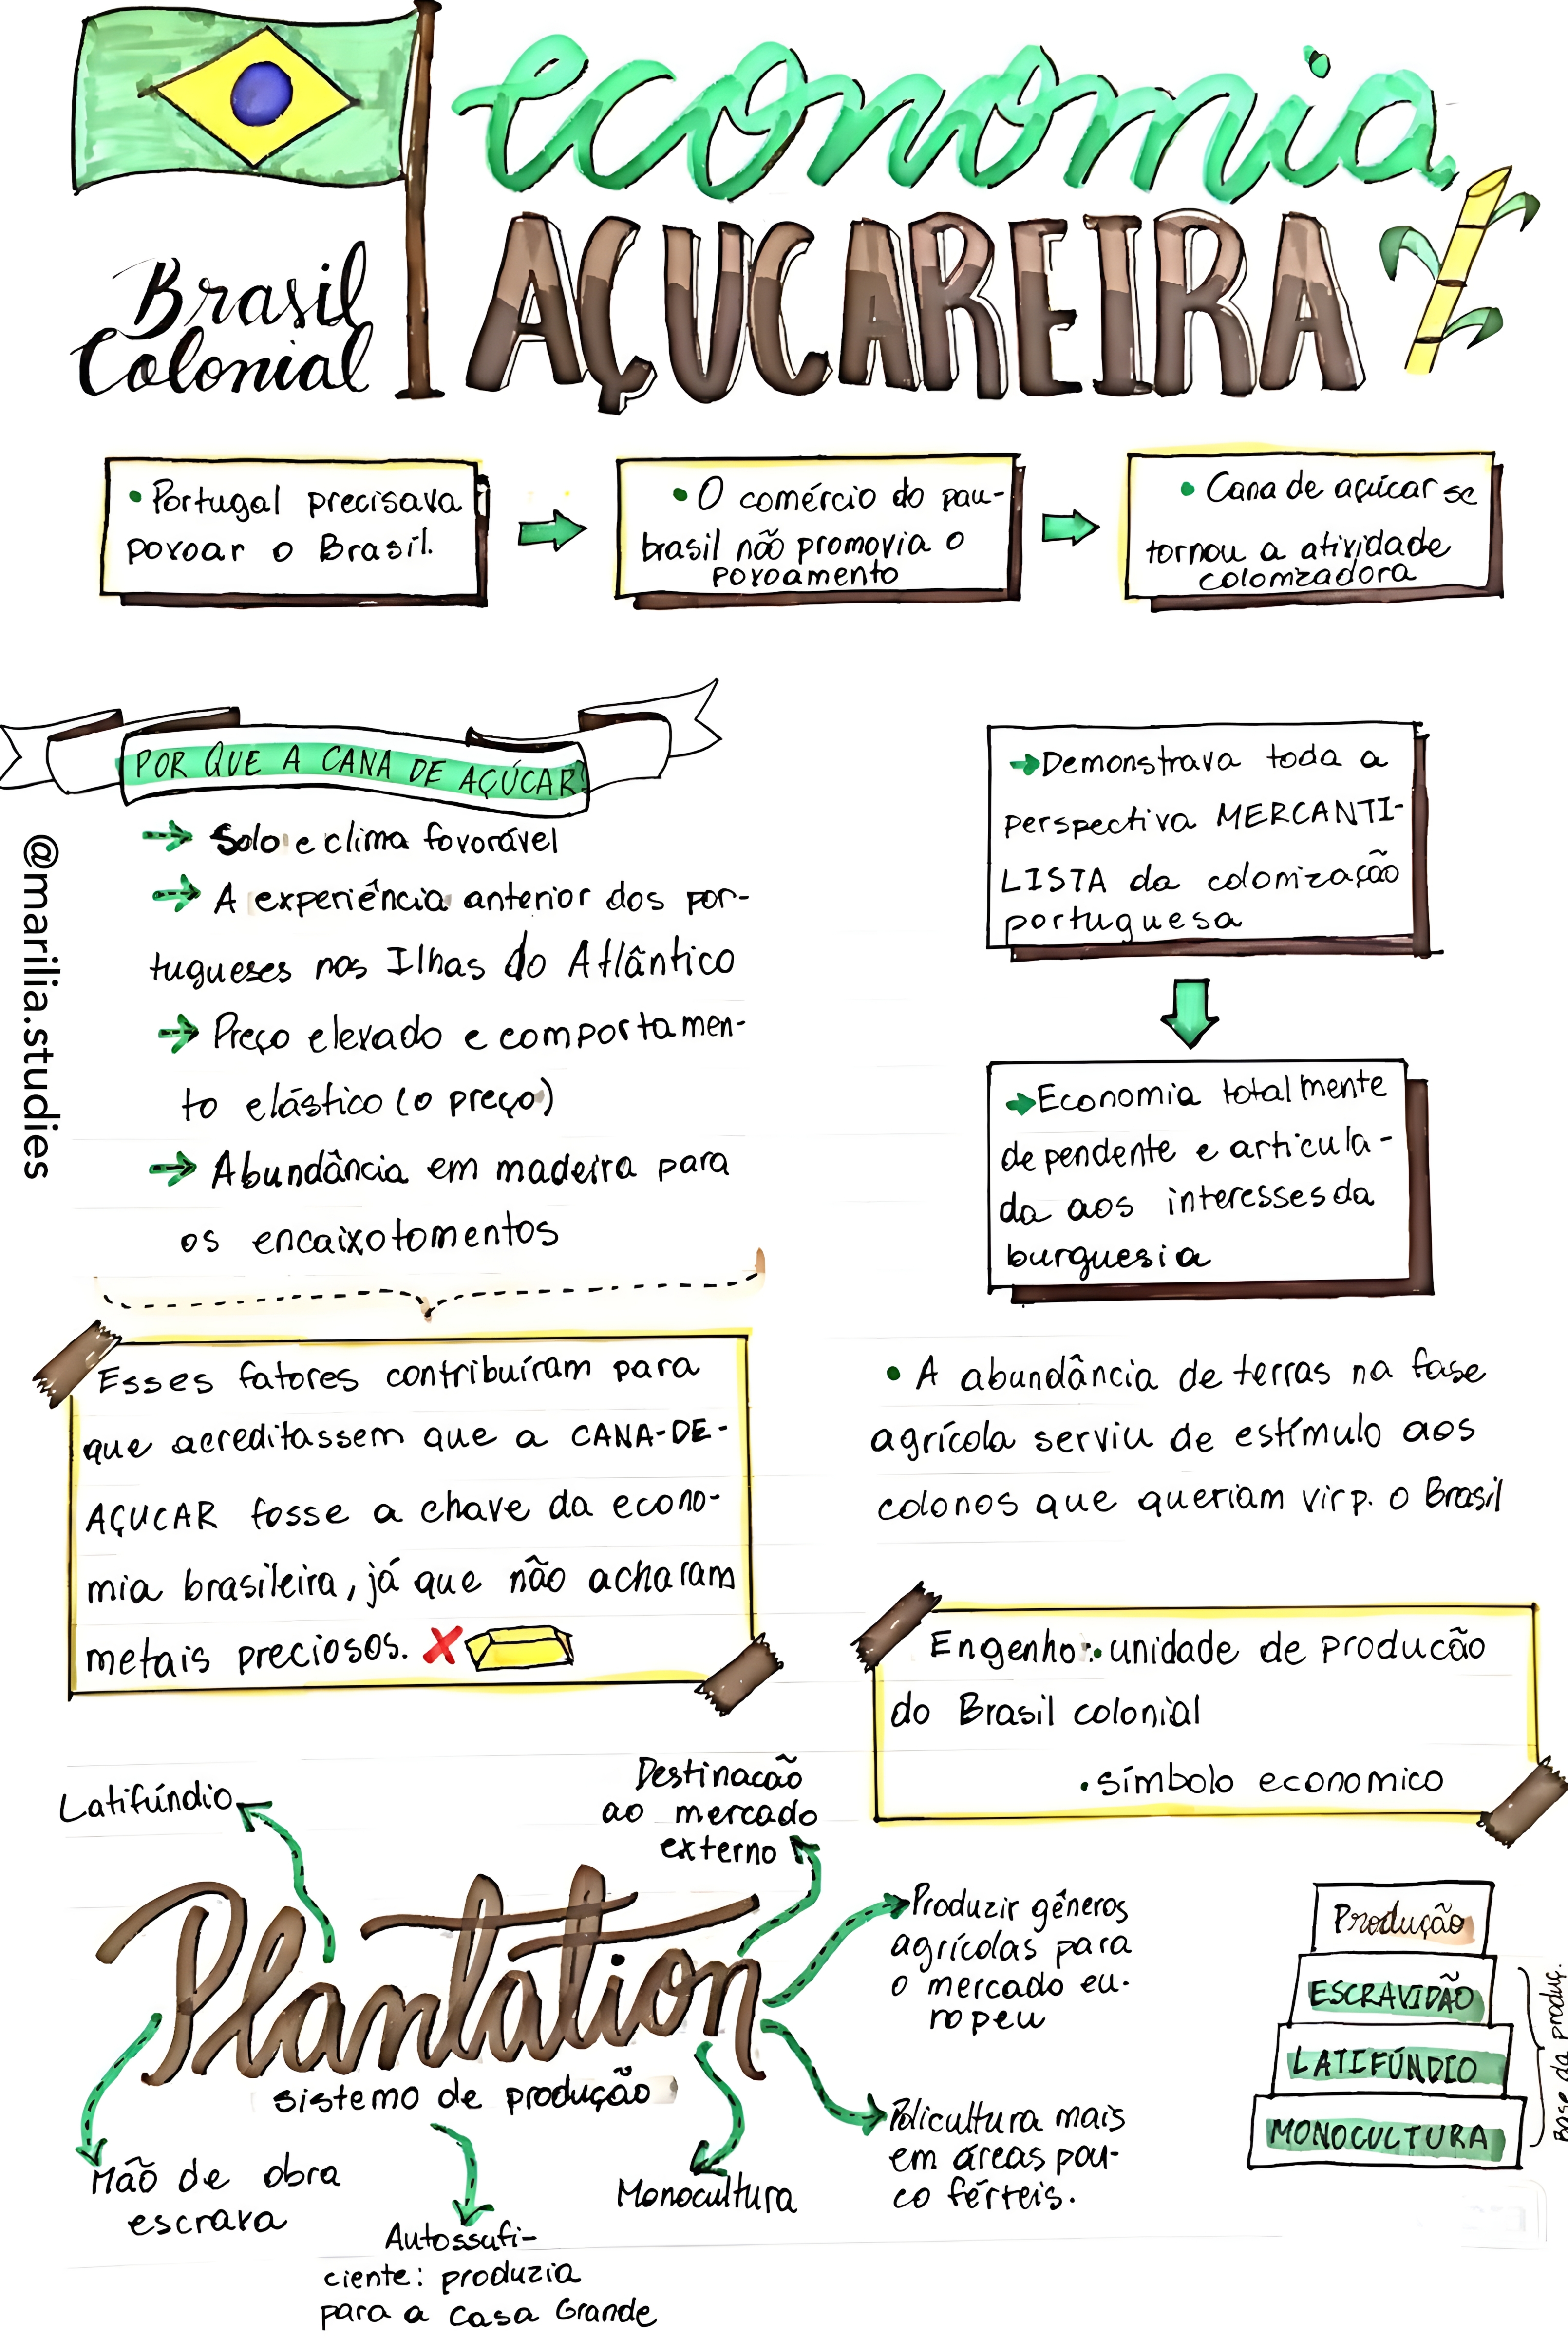 economia
AÇUCAREIRA
Brasil
Colonial
• Portugal precisava
povoar o Brasil.
• O comércio do pau-
brasil não promovia o
povoamento
• Cana de açúcar se
tornou a atividade
colonizadora
POR QUE A CANA DE AÇÚCAR?
→ Solo e clima favorável
→ A experiência anterior dos por-
tugueses nas Ilhas do Atlântico
→ Preço elevado e comportamen-
to elástico (o preço)
→ Abundância em madeira para
os encaixotomentos
@marilia.studies
Esses fatores contribuíram para
que acreditassem que a CANA-DE-
AÇUCAR fosse a chave da econo-
mia brasileira, já que não acharam
metais preciosos.
→ Demonstrava toda a
perspectiva MERCANTI-
LISTA da colonização
portuguesa
→ Economia totalmente
dependente e articula-
da aos interesses da
burguesia
• A abundância de terras na fase
agrícola serviu de estímulo aos
colonos que queriam vir p. o Brasil
Engenho: • unidade de producão
do Brasil colonial
• símbolo economico
Plantation
sistema de produção
Latifúndio
Destinacão
ao mercado
externo
Produzir gêneros
agrícolas para
o mercado eu-
ropeu
Policultura mais
em áreas pou-
co férteis.
Monocultura
Autossufi-
ciente: produzia
para a Casa Grande
Mão de obra
escrava
Produção
ESCRAVIDÃO
LATIFÚNDIO
MONOCULTURA
Base da produç.